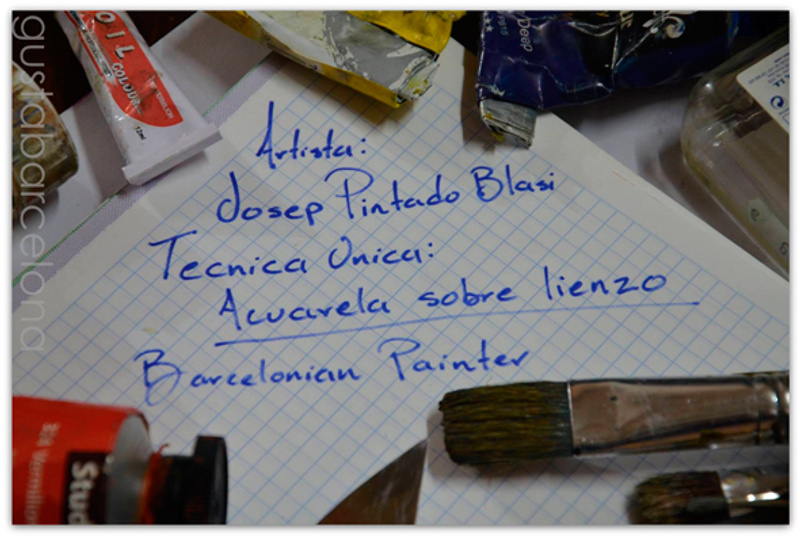 gustabarcelona
OIL
COLOUR
Deep
Artista:
Josep Pintado Blasi
Tecnica Unica:
Acuarela sobre lienzo
Barcelonian Painter
Stud